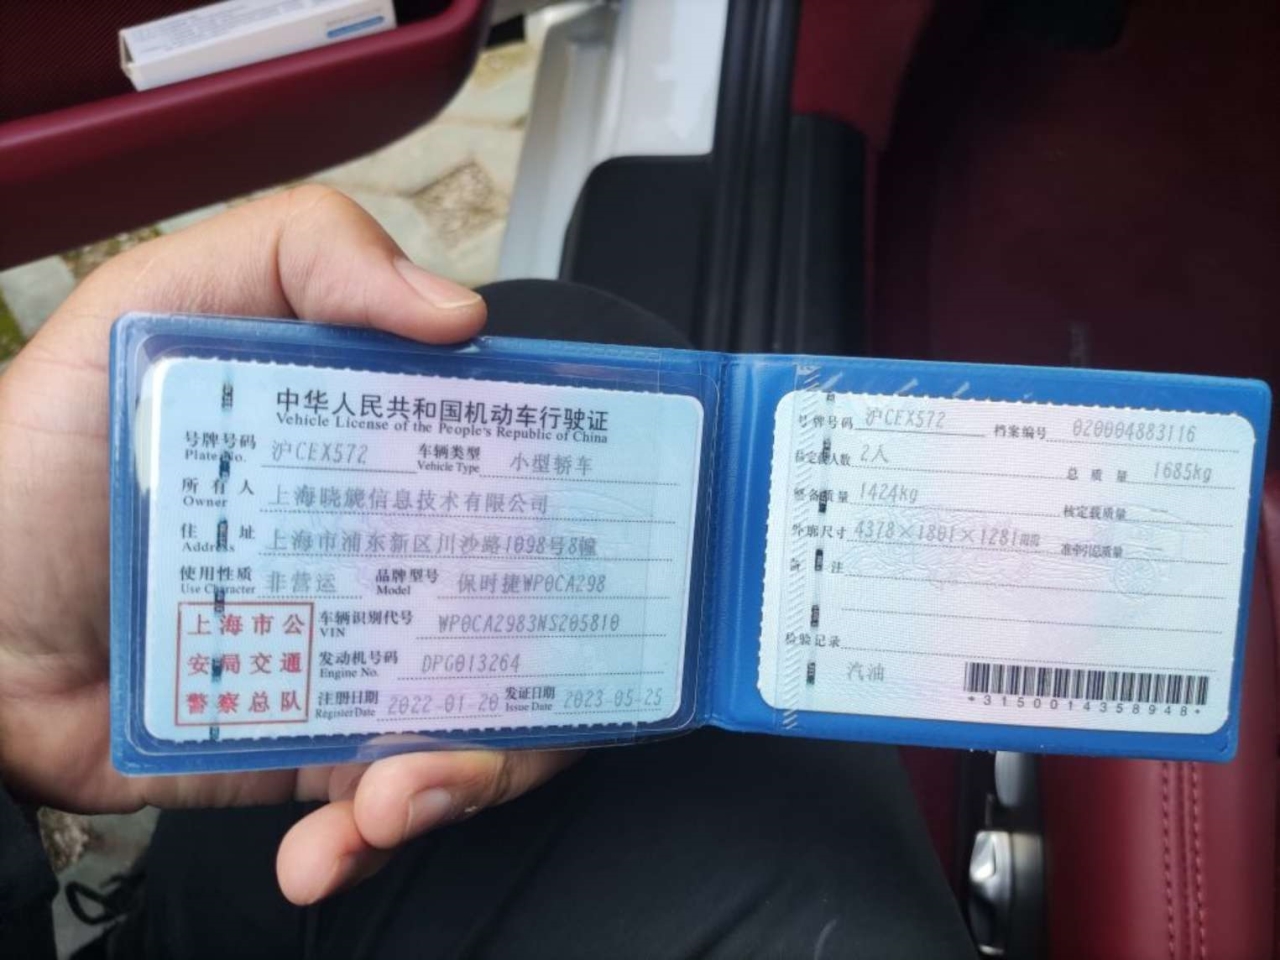 中华人民共和国机动车行驶证
Vehicle License of the People's Republic of China
号牌号码 沪CEX572 车辆类型 小型轿车
Plate No. Vehicle Type
所有人 上海晓觥信息技术有限公司
Owner
住址 上海市浦东新区川沙路1098号8幢
Address
使用性质 非营运 品牌型号 保时捷WP0CA298
Use Character Model
上海市公安局交通警察总队
车辆识别代号 WP0CA2983NS205810
VIN
发动机号码 DPG013264
Engine No.
注册日期 2022-01-20 发证日期 2023-05-25
Register Date Issue Date
号牌号码 沪CEX572 档案编号 020004883116
核定载人数 2人 总质量 1685kg
整备质量 1424kg 核定载质量 —
外廓尺寸 4378×1801×1281mm 准牵引总质量 —
备注
检验记录
汽油
*3150014358948*